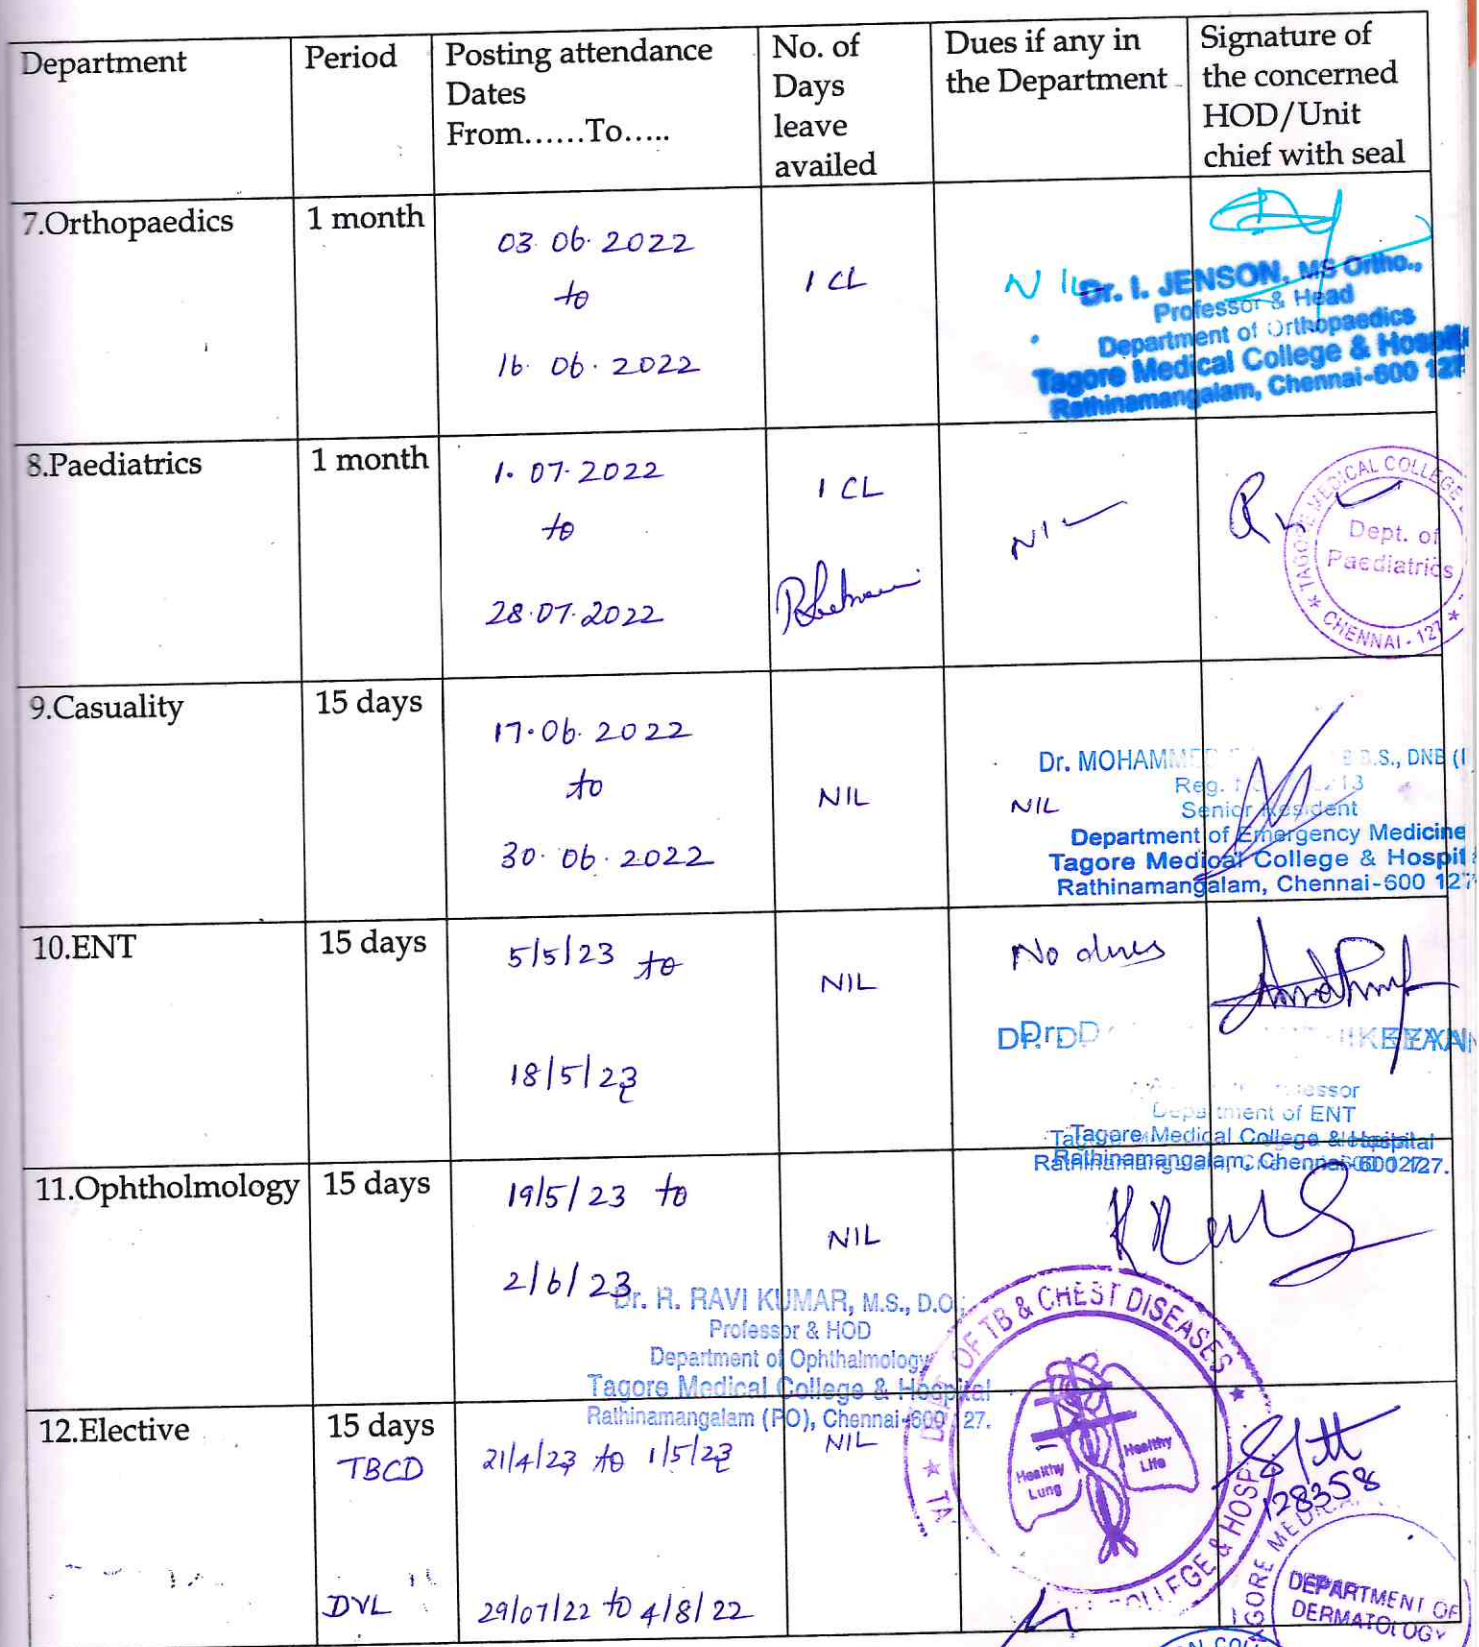 Department
Period
Posting attendance
Dates
From......To.....
No. of
Days
leave
availed
Dues if any in
the Department
Signature of
the concerned
HOD/Unit
chief with seal
7.Orthopaedics
1 month
03.06.2022
to
16.06.2022
1 CL
NIL
Dr. I. JENSON, MS Ortho.,
Professor & Head
Department of Orthopaedics
Tagore Medical College & Hospit
Rathinamangalam, Chennai-600 127
8.Paediatrics
1 month
1.07.2022
to
28.07.2022
1 CL
NIL
TAGORE MEDICAL COLLEGE
Dept. of
Paediatrics
* CHENNAI - 127 *
9.Casuality
15 days
17.06.2022
to
30.06.2022
NIL
NIL
Dr. MOHAMMED S., DNB (
Reg.
Senior Resident
Department of Emergency Medicine
Tagore Medical College & Hospit
Rathinamangalam, Chennai-600 127
10.ENT
15 days
5/5/23 to
18/5/23
NIL
No dues
Department of ENT
Tagore Medical College & Hospital
Rathinamangalam, Chennai-600 127.
11.Ophtholmology
15 days
19/5/23 to
2/6/23
NIL
Dr. R. RAVI KUMAR, M.S., D.O.,
Professor & HOD
Department of Ophthalmology
Tagore Medical College & Hospital
Rathinamangalam (PO), Chennai-600 127.
12.Elective
15 days
TBCD
21/4/23 to 1/5/23
NIL
OF TB & CHEST DISEASES *
COLLEGE & HOSP
* TA
Healthy
Lung
Healthy
Life
128358
DVL
29/07/22 to 4/8/22
AGORE MEDICA
DEPARTMENT OF
DERMATOLOGY